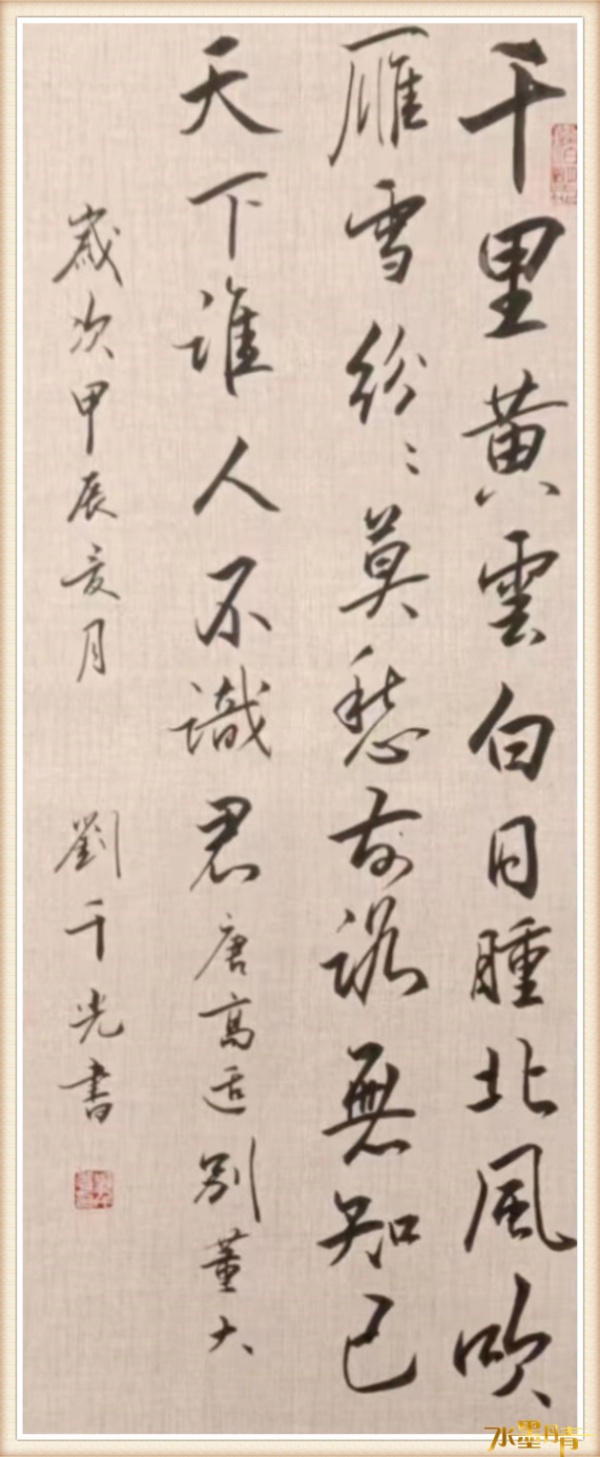 千里黄雲白日曛北風吹
雁雪紛〻莫愁前路無知己
天下誰人不識君 唐高适別董大
歲次甲辰亥月 劉千光書
水墨丹青